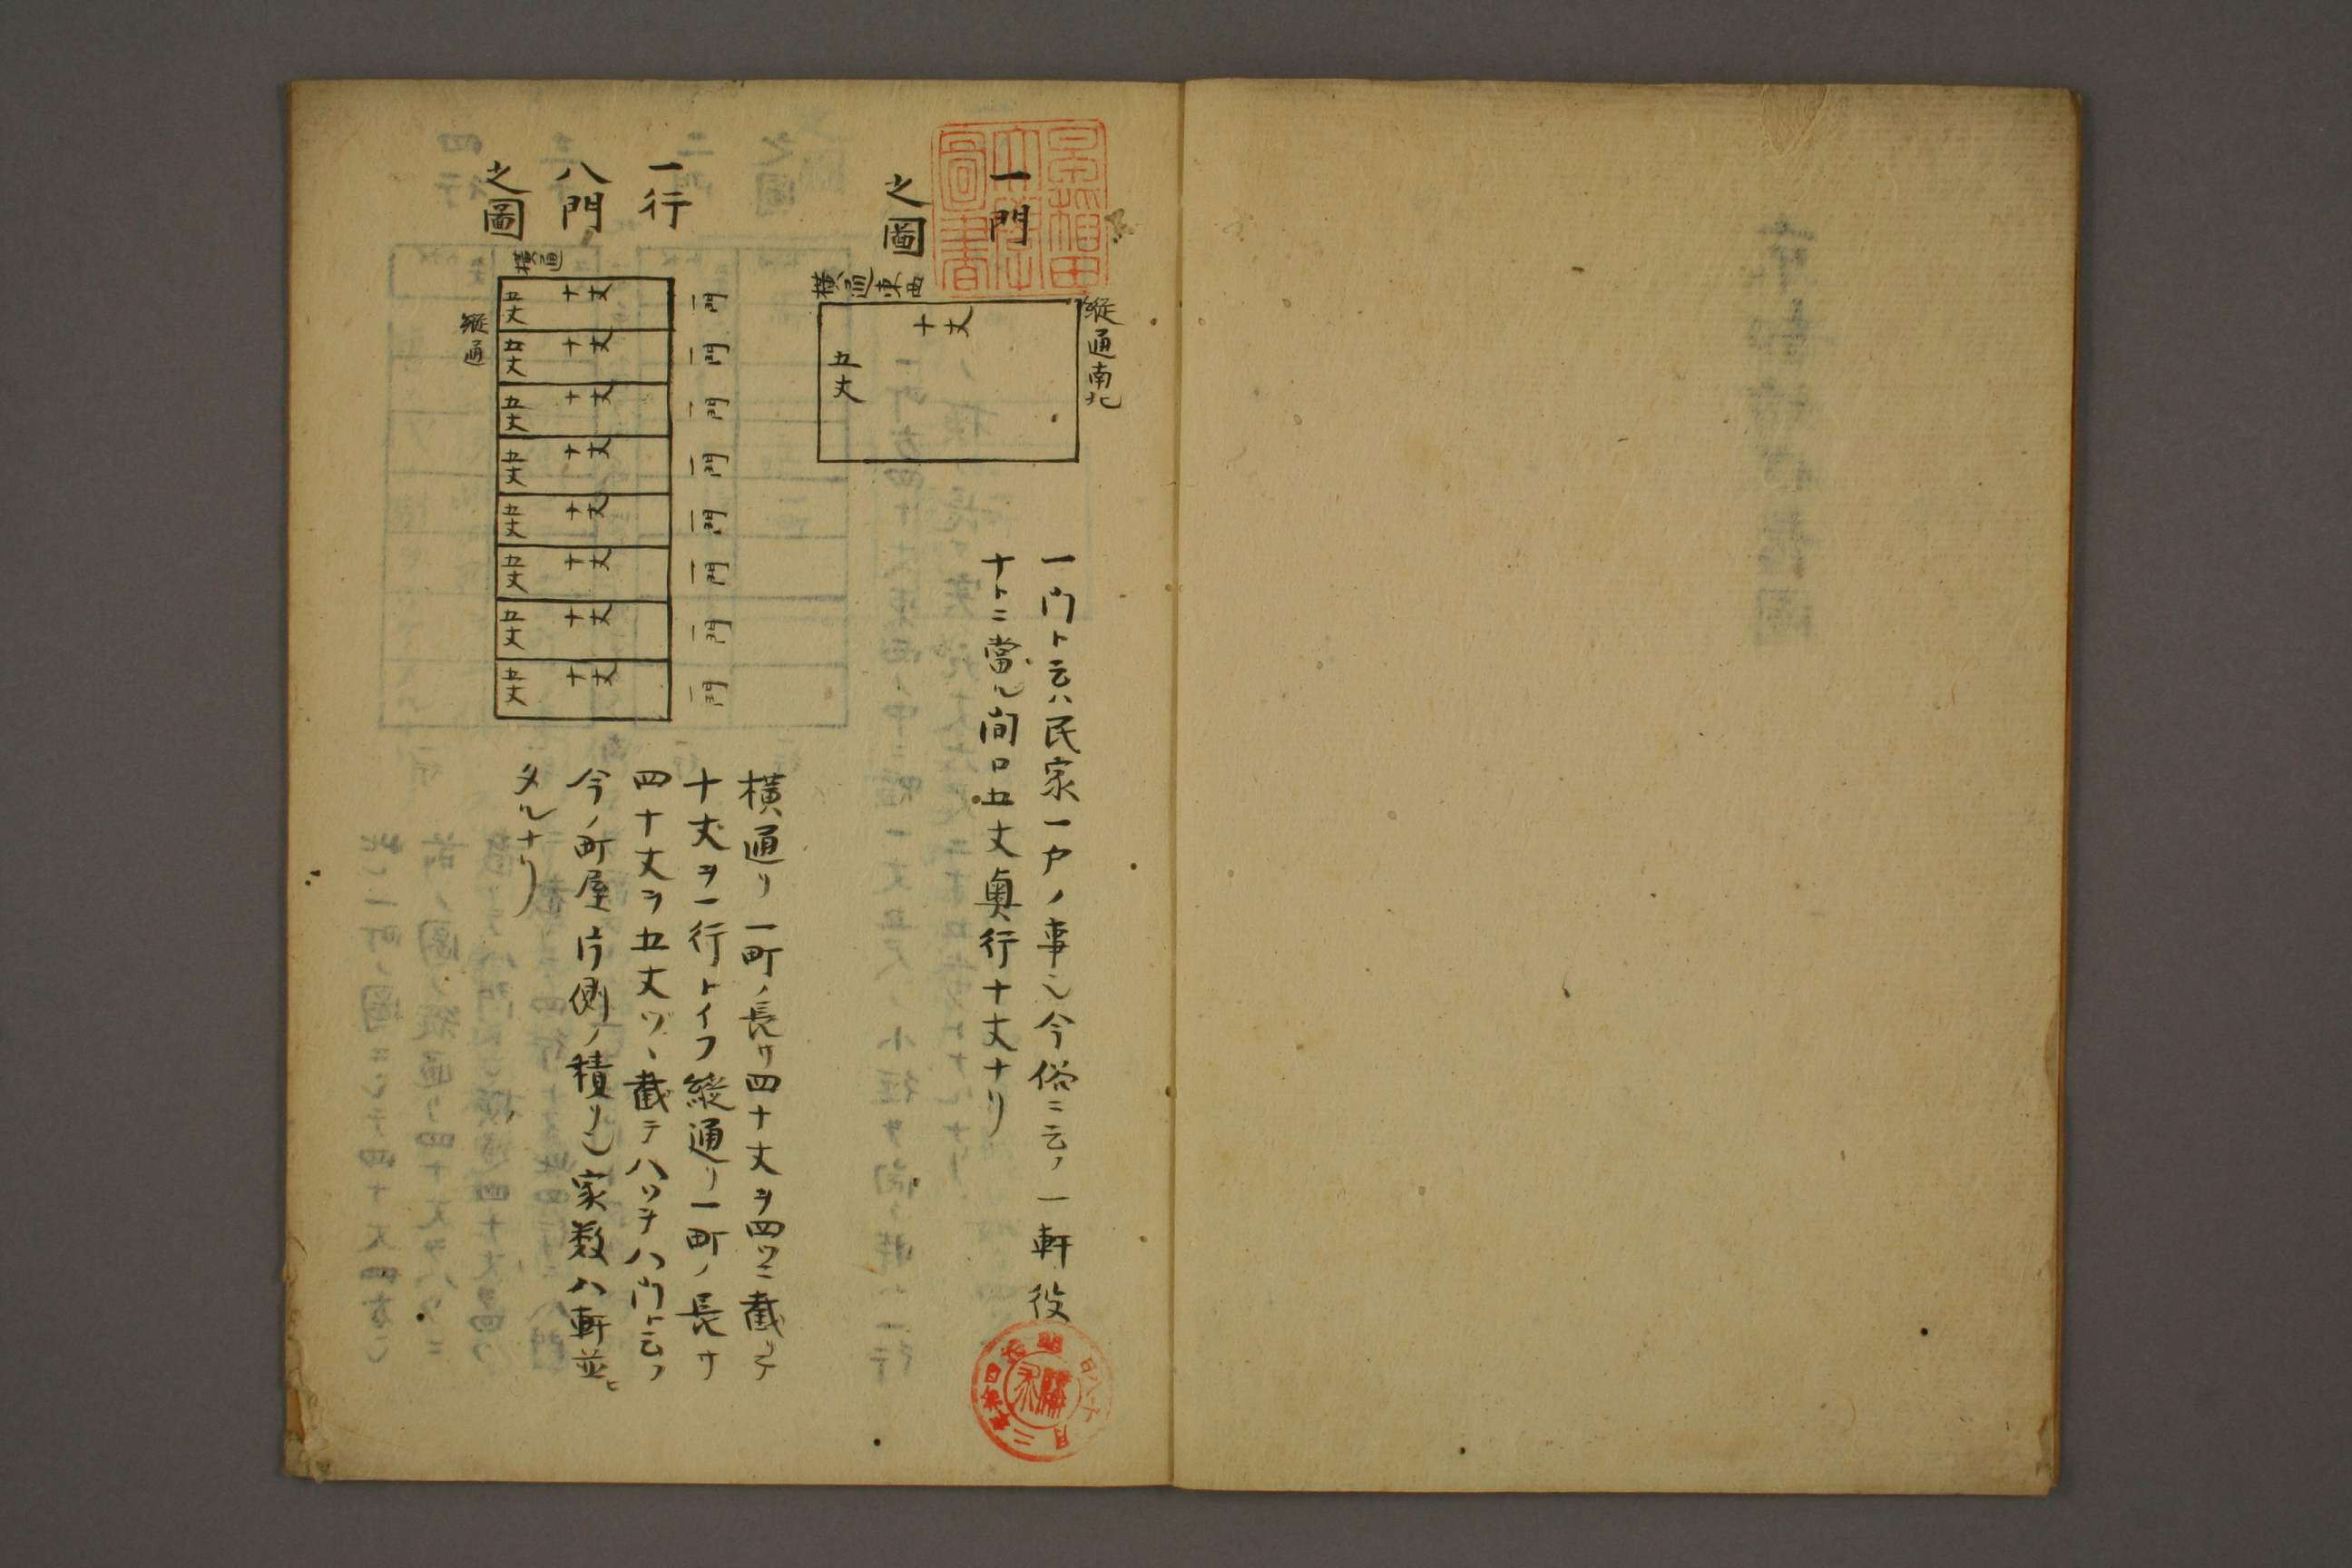 早稲田
大學
圖書
一門
之圖
縦通南北
横通東西
十丈
五丈
一門ト云ハ民家一戸ノ事也今俗ニ云フ一軒役
ナトニ當ル間口五丈奥行十丈ナリ
一行
八門
之圖
横通
縦通
一門
一門
一門
一門
一門
一門
一門
一門
十丈
五丈
十丈
五丈
十丈
五丈
十丈
五丈
十丈
五丈
十丈
五丈
十丈
五丈
十丈
五丈
横通リ一町ノ長サ四十丈ヲ四ツニ截リテ
十丈ヲ一行トイフ縦通リ一町ノ長サ
四十丈ヲ五丈ヅヽ截テ八ツヲ八門ト云フ
今ノ町屋片側ノ積リ也家数八軒並ヒ
タルナリ